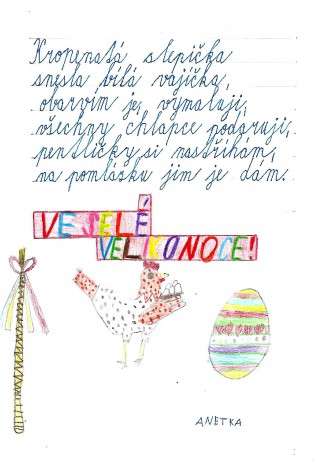 Kropenatá slepička
snesla bílá vajíčka,
obarvím je, vymaluji,
všechny chlapce podaruji,
pentličky si nastříhám,
na pomlázku jim je dám.
VESELÉ
VELIKONOCE!
ANETKA